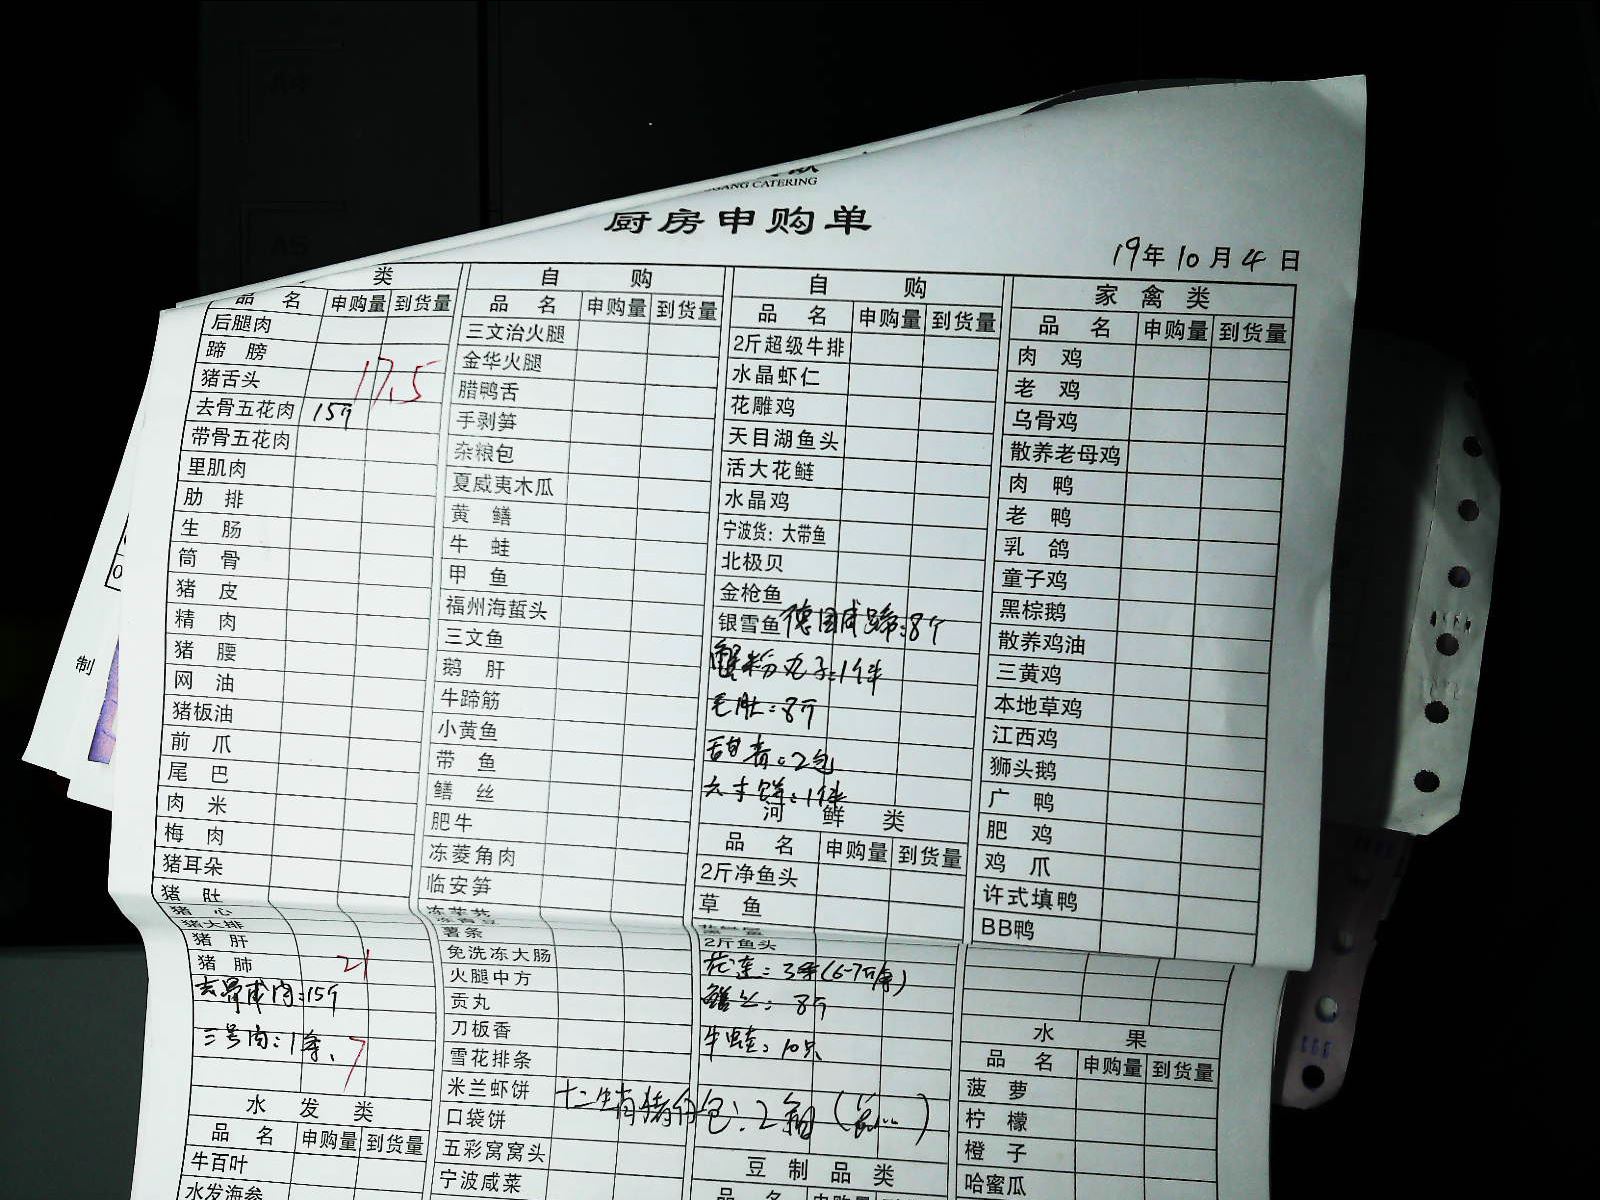 GANG CATERING
厨房申购单
19年10月4日
类
品名 申购量 到货量
后腿肉
蹄膀
猪舌头 17.5
去骨五花肉 15斤
带骨五花肉
里肌肉
肋排
生肠
筒骨
猪皮
精肉
猪腰
网油
猪板油
前爪
尾巴
肉米
梅肉
猪耳朵
猪肚
猪心
猪大排
猪肝
猪肺 21
去骨咸肉:15斤
三号肉:1条、 7
水发类
品名 申购量 到货量
牛百叶
水发海参
自购
品名 申购量 到货量
三文治火腿
金华火腿
腊鸭舌
手剥笋
杂粮包
夏威夷木瓜
黄鳝
牛蛙
甲鱼
福州海蜇头
三文鱼
鹅肝
牛蹄筋
小黄鱼
带鱼
鳝丝
肥牛
冻菱角肉
临安笋
薯条
免洗冻大肠
火腿中方
贡丸
刀板香
雪花排条
米兰虾饼
口袋饼
五彩窝窝头
宁波咸菜
自购
品名 申购量 到货量
2斤超级牛排
水晶虾仁
花雕鸡
天目湖鱼头
活大花鲢
水晶鸡
宁波货:大带鱼
北极贝
金枪鱼
银雪鱼 德国咸蹄:8个
蟹粉丸子:1件
毛肚:8斤
2包
1件
河鲜类
品名 申购量 到货量
2斤净鱼头
草鱼
2斤鱼头
花莲:3条(6-7斤/条)
8斤
牛蛙:10只
十二生肖猪仔包:2箱
豆制品类
品名 申购量 到货量
家禽类
品名 申购量 到货量
肉鸡
老鸡
乌骨鸡
散养老母鸡
肉鸭
老鸭
乳鸽
童子鸡
黑棕鹅
散养鸡油
三黄鸡
本地草鸡
江西鸡
狮头鹅
广鸭
肥鸡
鸡爪
许式填鸭
BB鸭
水果
品名 申购量 到货量
菠萝
柠檬
橙子
哈蜜瓜
制